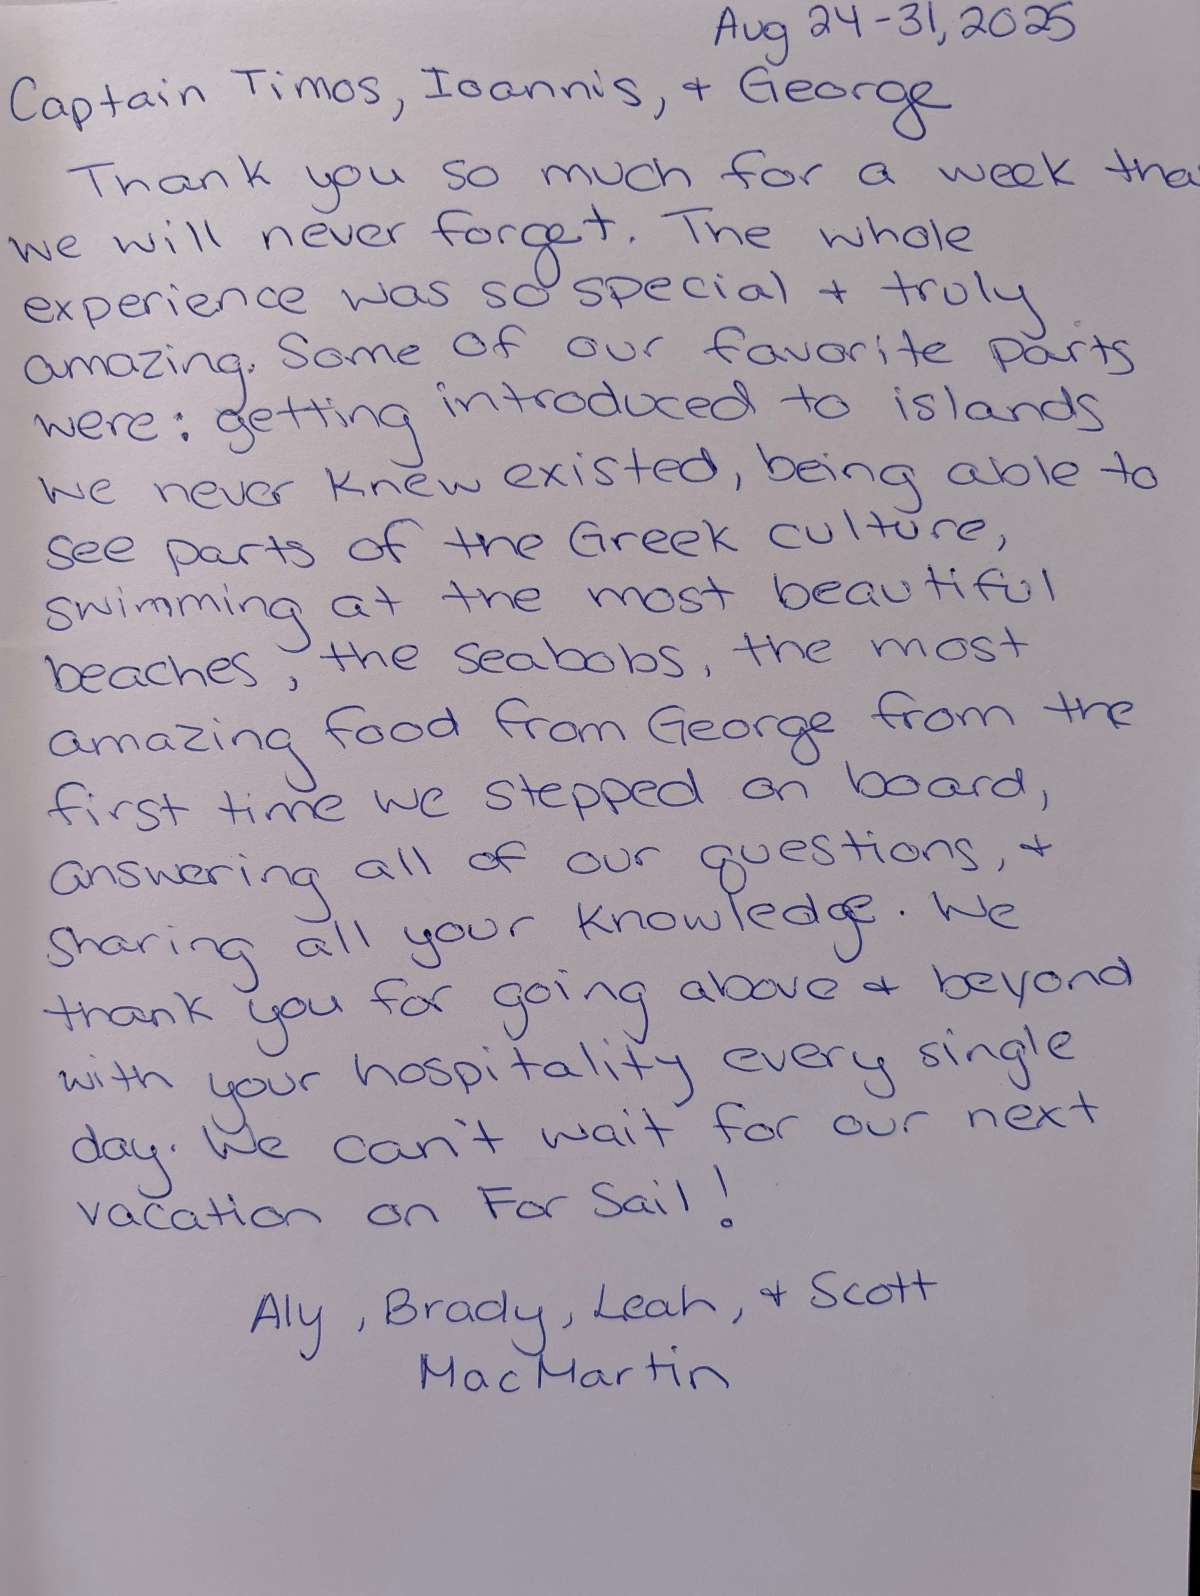 Aug 24-31, 2025
Captain Timos, Ioannis, + George
Thank you so much for a week tha
we will never forget. The whole
experience was so special + truly
amazing. Some of our favorite parts
were: getting introduced to islands
we never knew existed, being able to
see parts of the Greek culture,
swimming at the most beautiful
beaches, the seabobs, the most
amazing food from George from the
first time we stepped on board,
answering all of our questions, +
sharing all your knowledge. We
thank you for going above + beyond
with your hospitality every single
day. We can't wait for our next
vacation on For Sail!
Aly, Brady, Leah, + Scott
MacMartin